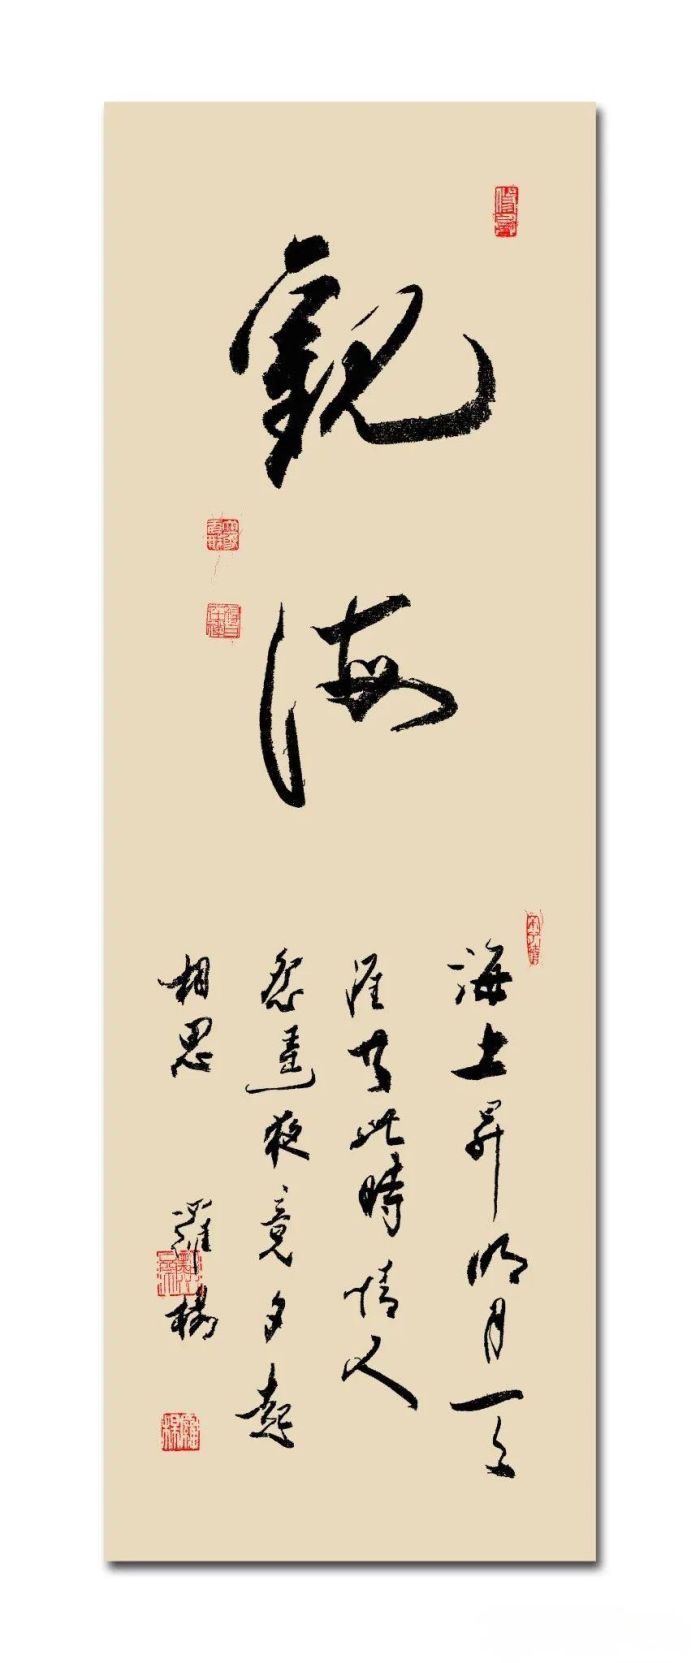 觀海
海上昇明月天
涯共此時情人
怨遙夜竟夕起
相思
羅楊